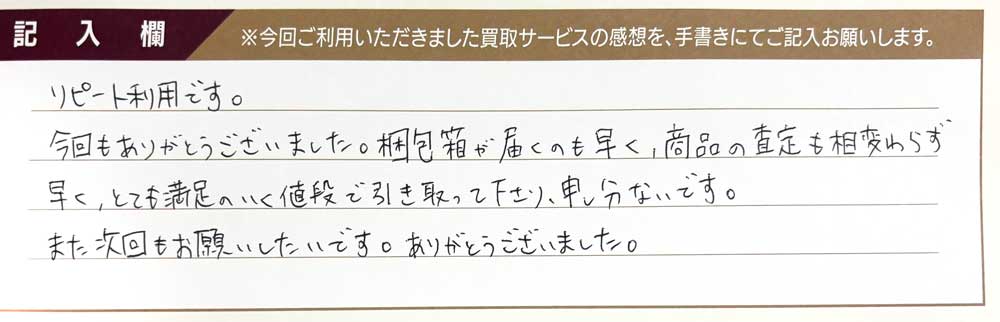 記入欄 ※今回ご利用いただきました買取サービスの感想を、手書きにてご記入お願いします。
リピート利用です。
今回もありがとうございました。梱包箱が届くのも早く,商品の査定も相変わらず
早く,とても満足のいく値段で引き取って下さり、申し分ないです。
また次回もお願いしたいです。ありがとうございました。